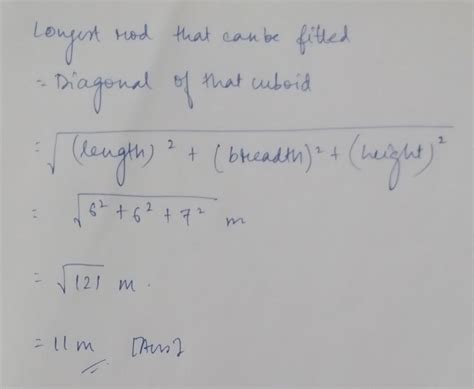 Longest rod that can be fitted
= Diagonal of that cuboid
= √(length)² + (breadth)² + (height)²
= √6² + 6² + 7² m
= √121 m.
= 11 m [Ans]